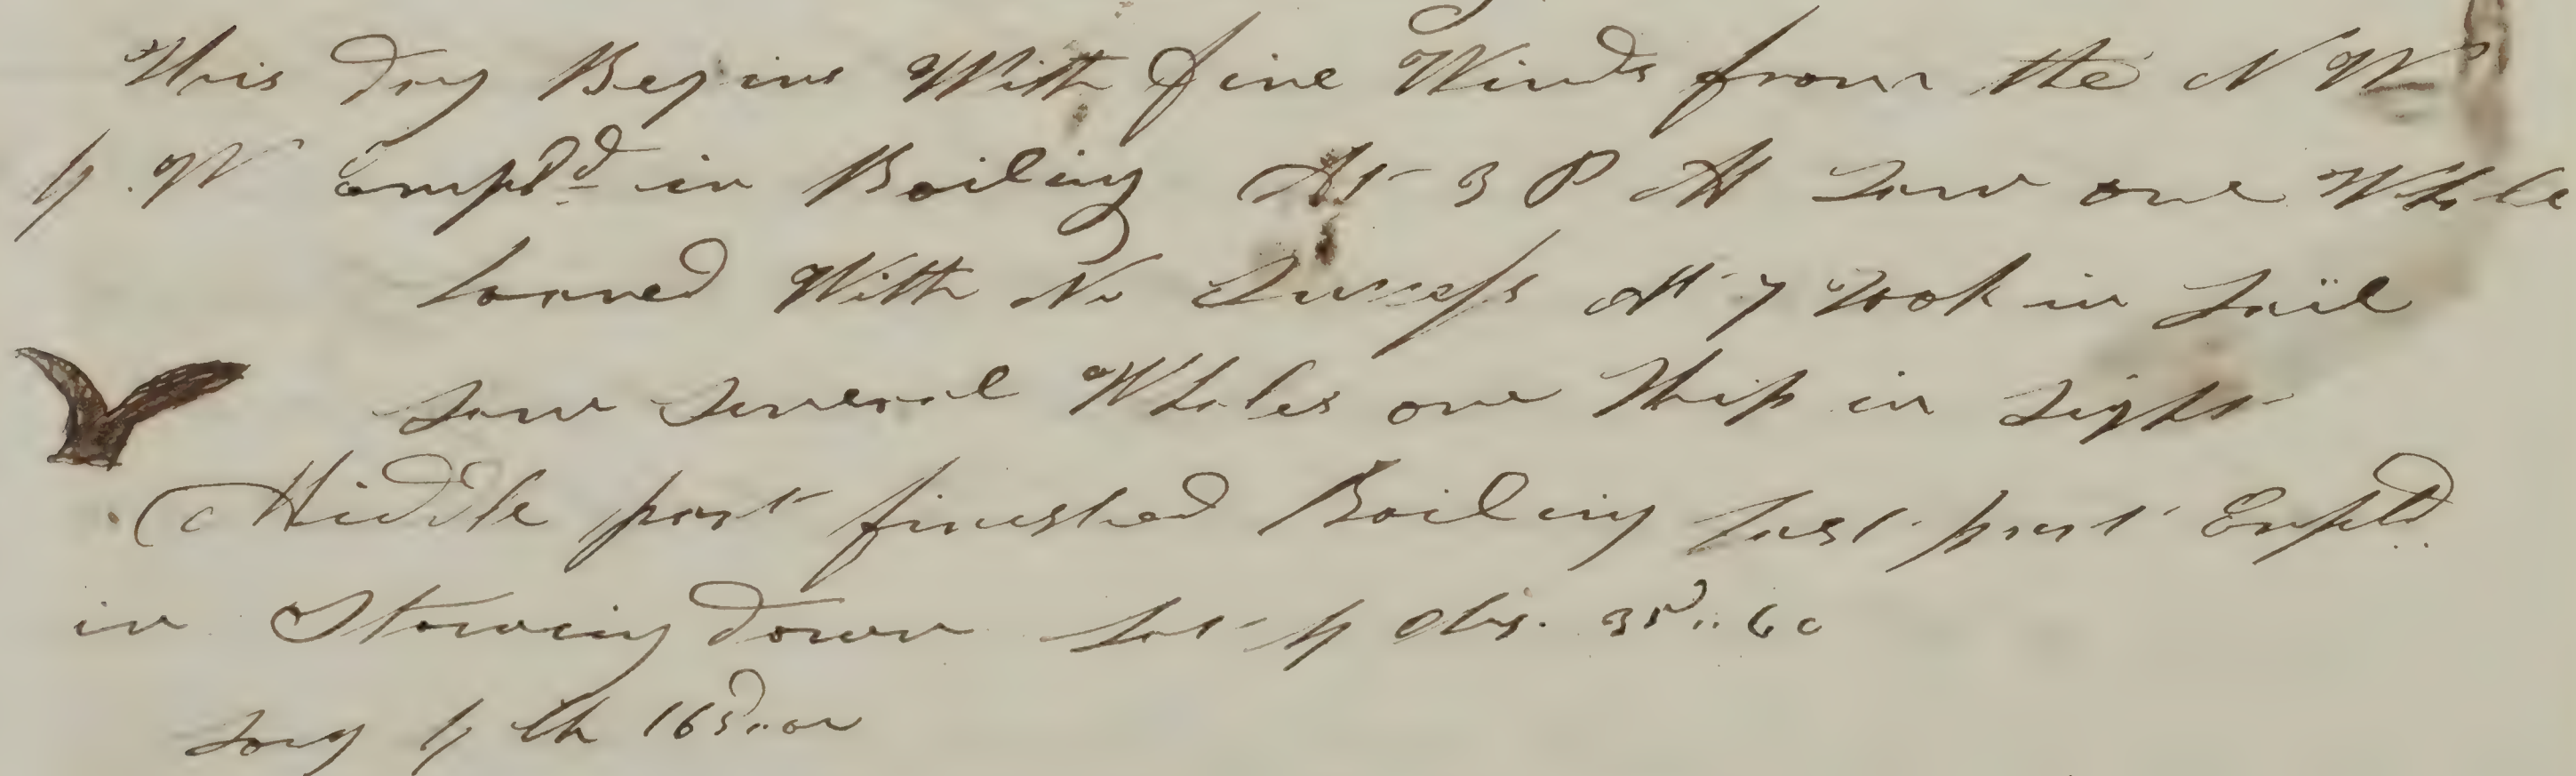 This Day Begins With fine Winds from the N W
by W Empld in Boiling At 3 P M Saw one Whale
Loared With No Success At 7 took in Sail
Saw Several Whales one Ship in Sight
Middle part finished Boiling Last part Empld
in Stowing Down Lat by Obs. 35..60
Long by Ch 165..00